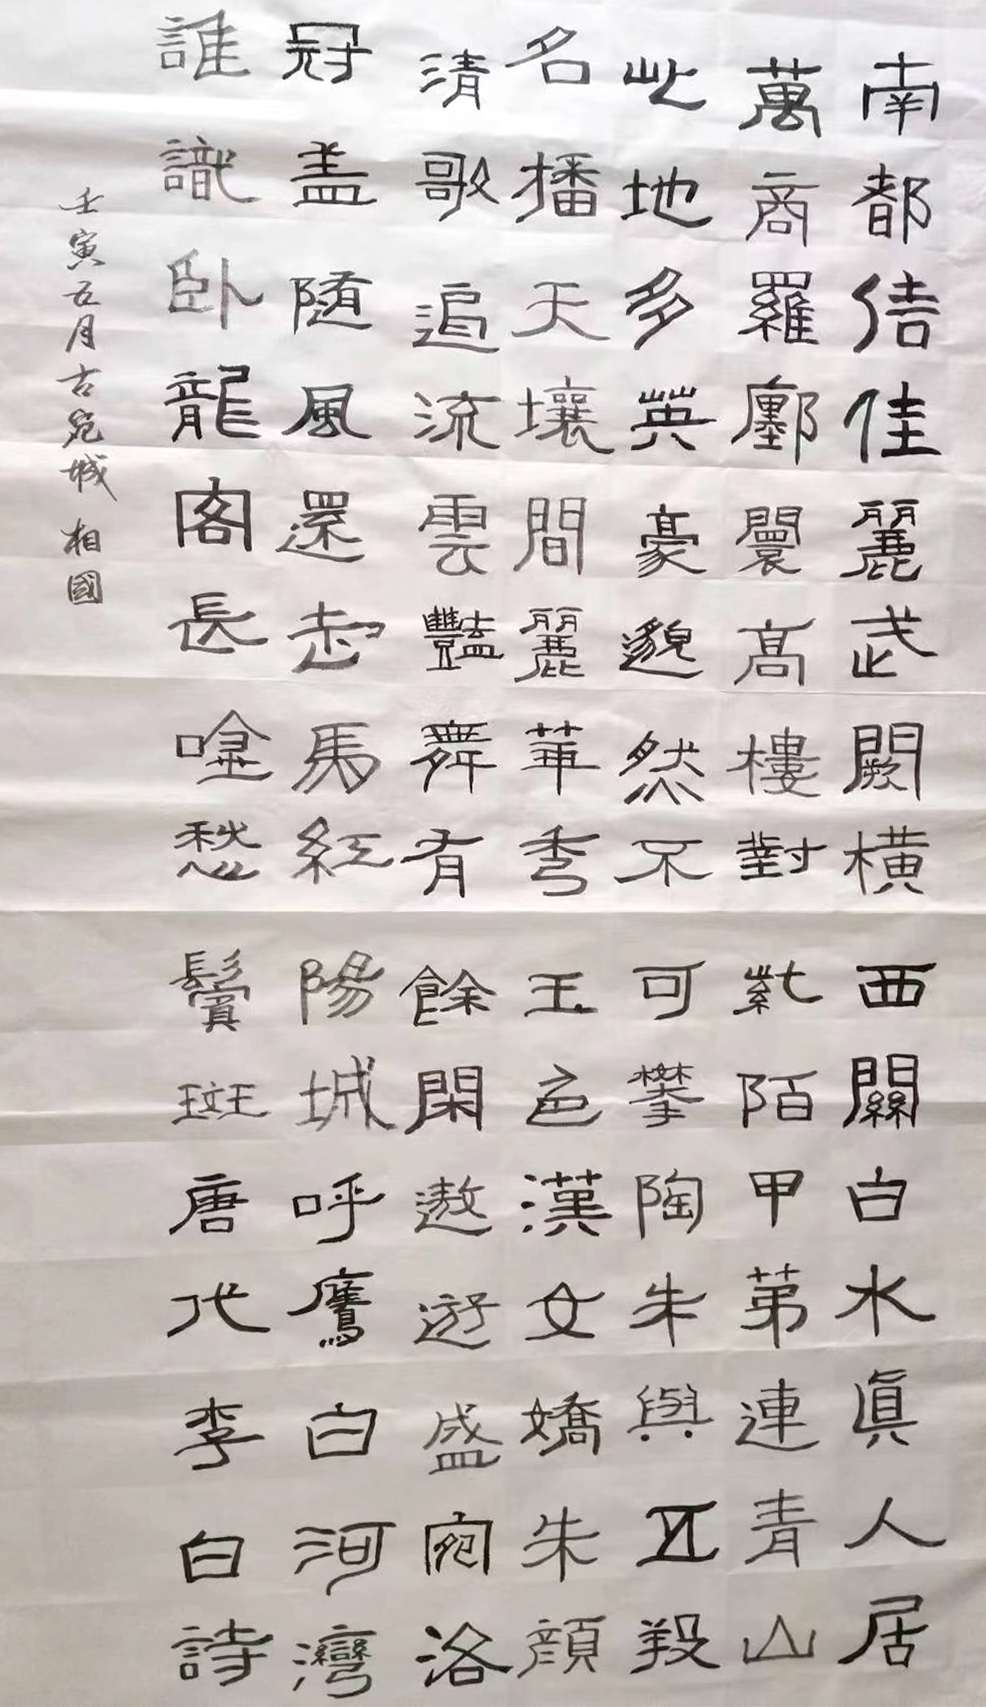 南都佶佳麗武闕橫西關白水眞人居
萬商羅鄽闤髙樓對紫陌甲苐連青山
此地多英豪邈然不可攀陶朱與五羖
名播天壤間麗華秀玉色漢女嬌朱顔
清歌追流雲豔舞有餘閑遨遊盛宛洛
冠盖随風還走馬紅陽城呼鷹白河灣
誰識卧龍客長唫愁鬢斑唐代李白詩
壬寅五月古宛城 相國